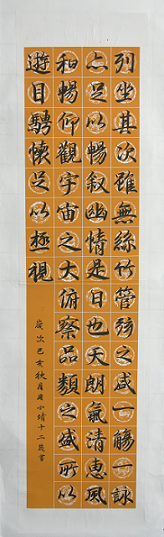 列坐其次雖無絲竹管弦之盛一觴一詠
亦足以暢敘幽情是日也天朗氣清惠風
和暢仰觀宇宙之大俯察品類之盛所以
遊目騁懷足以極視
歲次己亥秋月小靖十二歲書